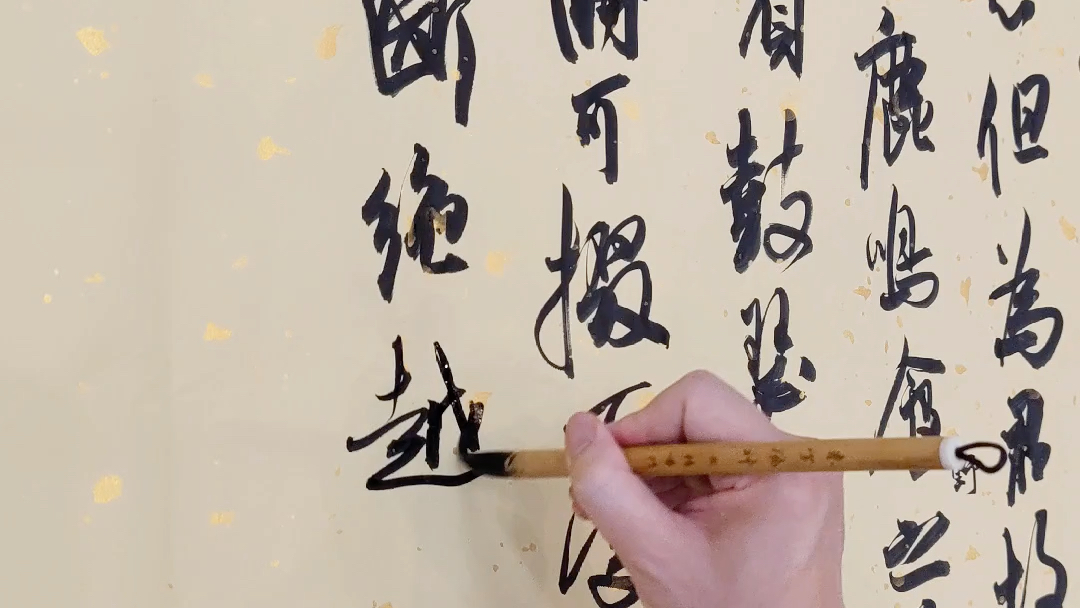 但為君故
鹿鳴食野
鼓瑟
可掇
斷絕越